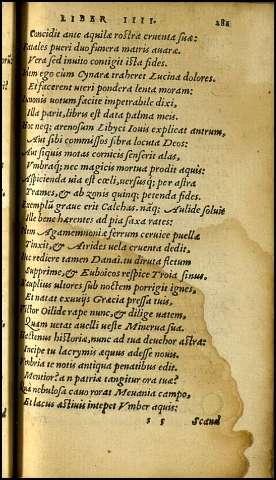 LIBER IIII. 281
Concidit ante aquilæ rostra cruenta suæ:
uales pueri duo funera matris auaræ.
Vera sed inuito contigit ista fides.
um ego cùm Cynaræ traheret Lucina dolores.
Et facerent uteri pondera lenta moram:
unonis uotum facite impetrabile dixi,
Illa parit, libris est data palma meis.
Hoc neq; arenosum Libyci Iouis explicat antrum,
Aut sibi commissos fibra locuta Deos:
Aut siquis motas cornicis senserit alas,
Vmbraq; nec magicis mortua prodit aquis:
Aspicienda uia est cœli, uersusq; per astra
Trames, & ab zonis quinq; petenda fides.
Exemplũ graue erit Calchas. náq; Aulide soluit
Ille bene hærentes ad pia saxa rates:
dem Agamemnoniæ ferrum ceruice puellæ
Tinxit, & Atrides uela cruenta dedit.
Nec rediere tamen Danai. tu diruta fletum
Supprime, & Euboicos respice Troia sinus.
Nauplius ultores sub noctem porrigit ignes,
Et natat exuuijs Græcia pressa tuis.
Victor Oilide rape nunc, & dilige uatem,
Quam uetat auelli ueste Minerua sua.
Hactenus historiæ, nunc ad tua deuehor astra:
Incipe tu lacrymis æquus adesse nouis.
Vmbria te notis antiqua penatibus edit.
Mentior? an patria tangitur ora tuæ?
Qua nebulosa cauo rorat Meuania campo,
Et lacus æstiuis intepet Vmber aquis:
Scand